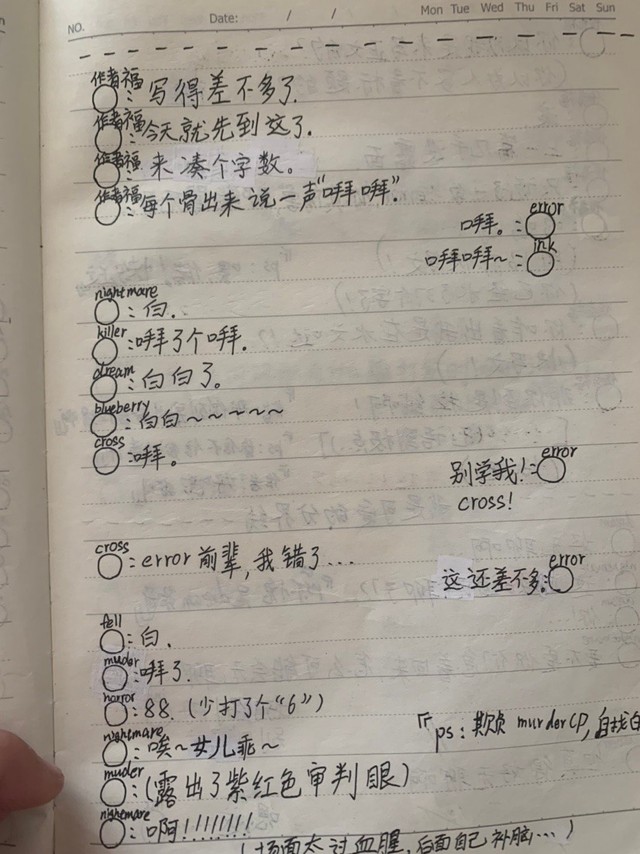 NO.
Date: / /
Mon Tue Wed Thu Fri Sat Sun
作者福：写得差不多了.
作者福：今天就先到这了.
作者福：来凑个字数。
作者福：每个骨出来说一声"哶哶".
哶。：error
哶哶哶~：ink
nightmare：白.
killer：哶了个哶.
dream：白白了。
blueberry：白白~~~~~
cross：哶。
别学我!：error
cross!
cross：error前辈,我错了...
这还差不多.：error
fell：白.
muder：哶了.
horror：88.(少打了个"6")
nightmare：唉~女儿乖~
『ps:欺负murderCP,自找白
muder：(露出了紫红色审判眼)
nightmare：啊!!!!!!!!
(场面太过血腥,后面自己补脑...)